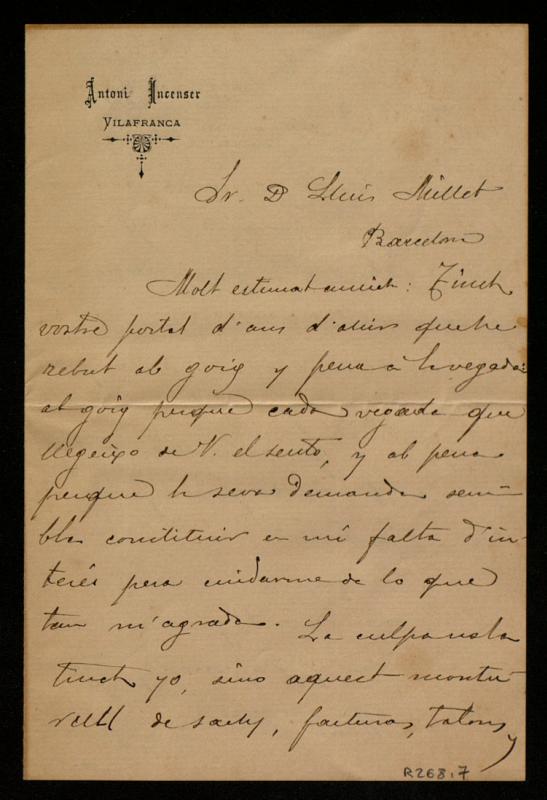 Antoni Incenser
VILAFRANCA
Sr. D Lluis Millet
Barcelona
Molt estimat amich: Tinch
vostre postal d'ans d'ahir que he
rebut ab goig y pena á la vegada:
ab goig perque cada vegada que
llegeixo de V. el sento, y ab pena
perque la seva demanda sem-
bla constituir en mí falta d'in-
terés pera cuidarme de lo que
tan m'agrada. La culpa no la
tinch yo, sino aquest
de sachs, facturas, talons
y
R268,7